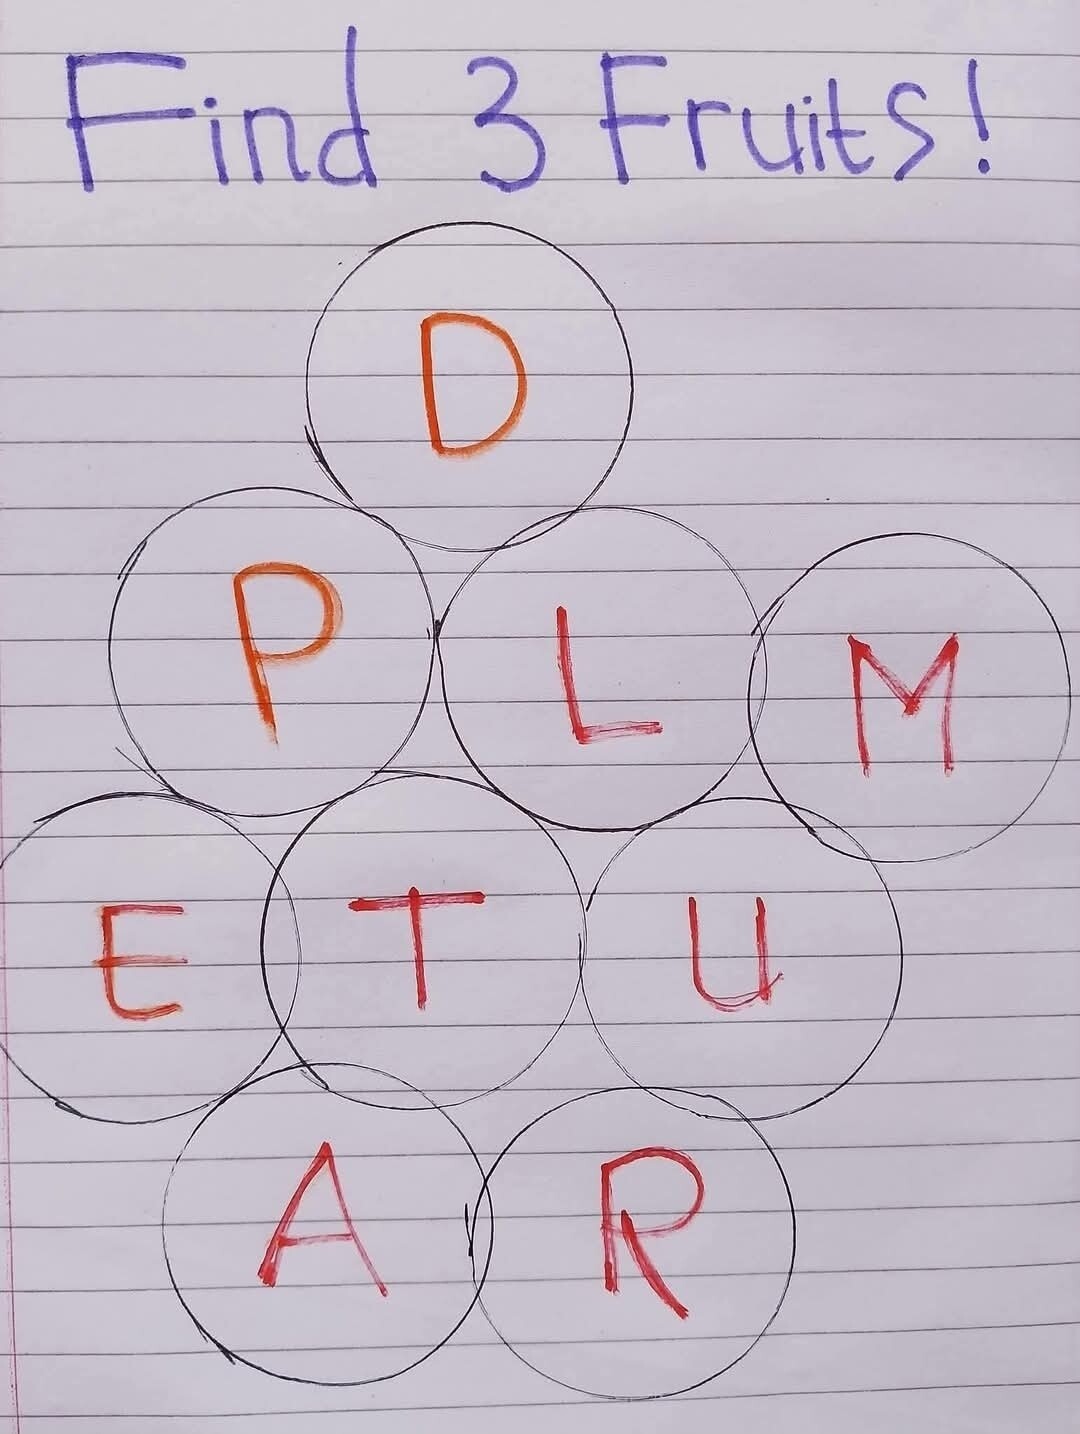 Find 3 Fruits!
D
P L M
E T U
A R